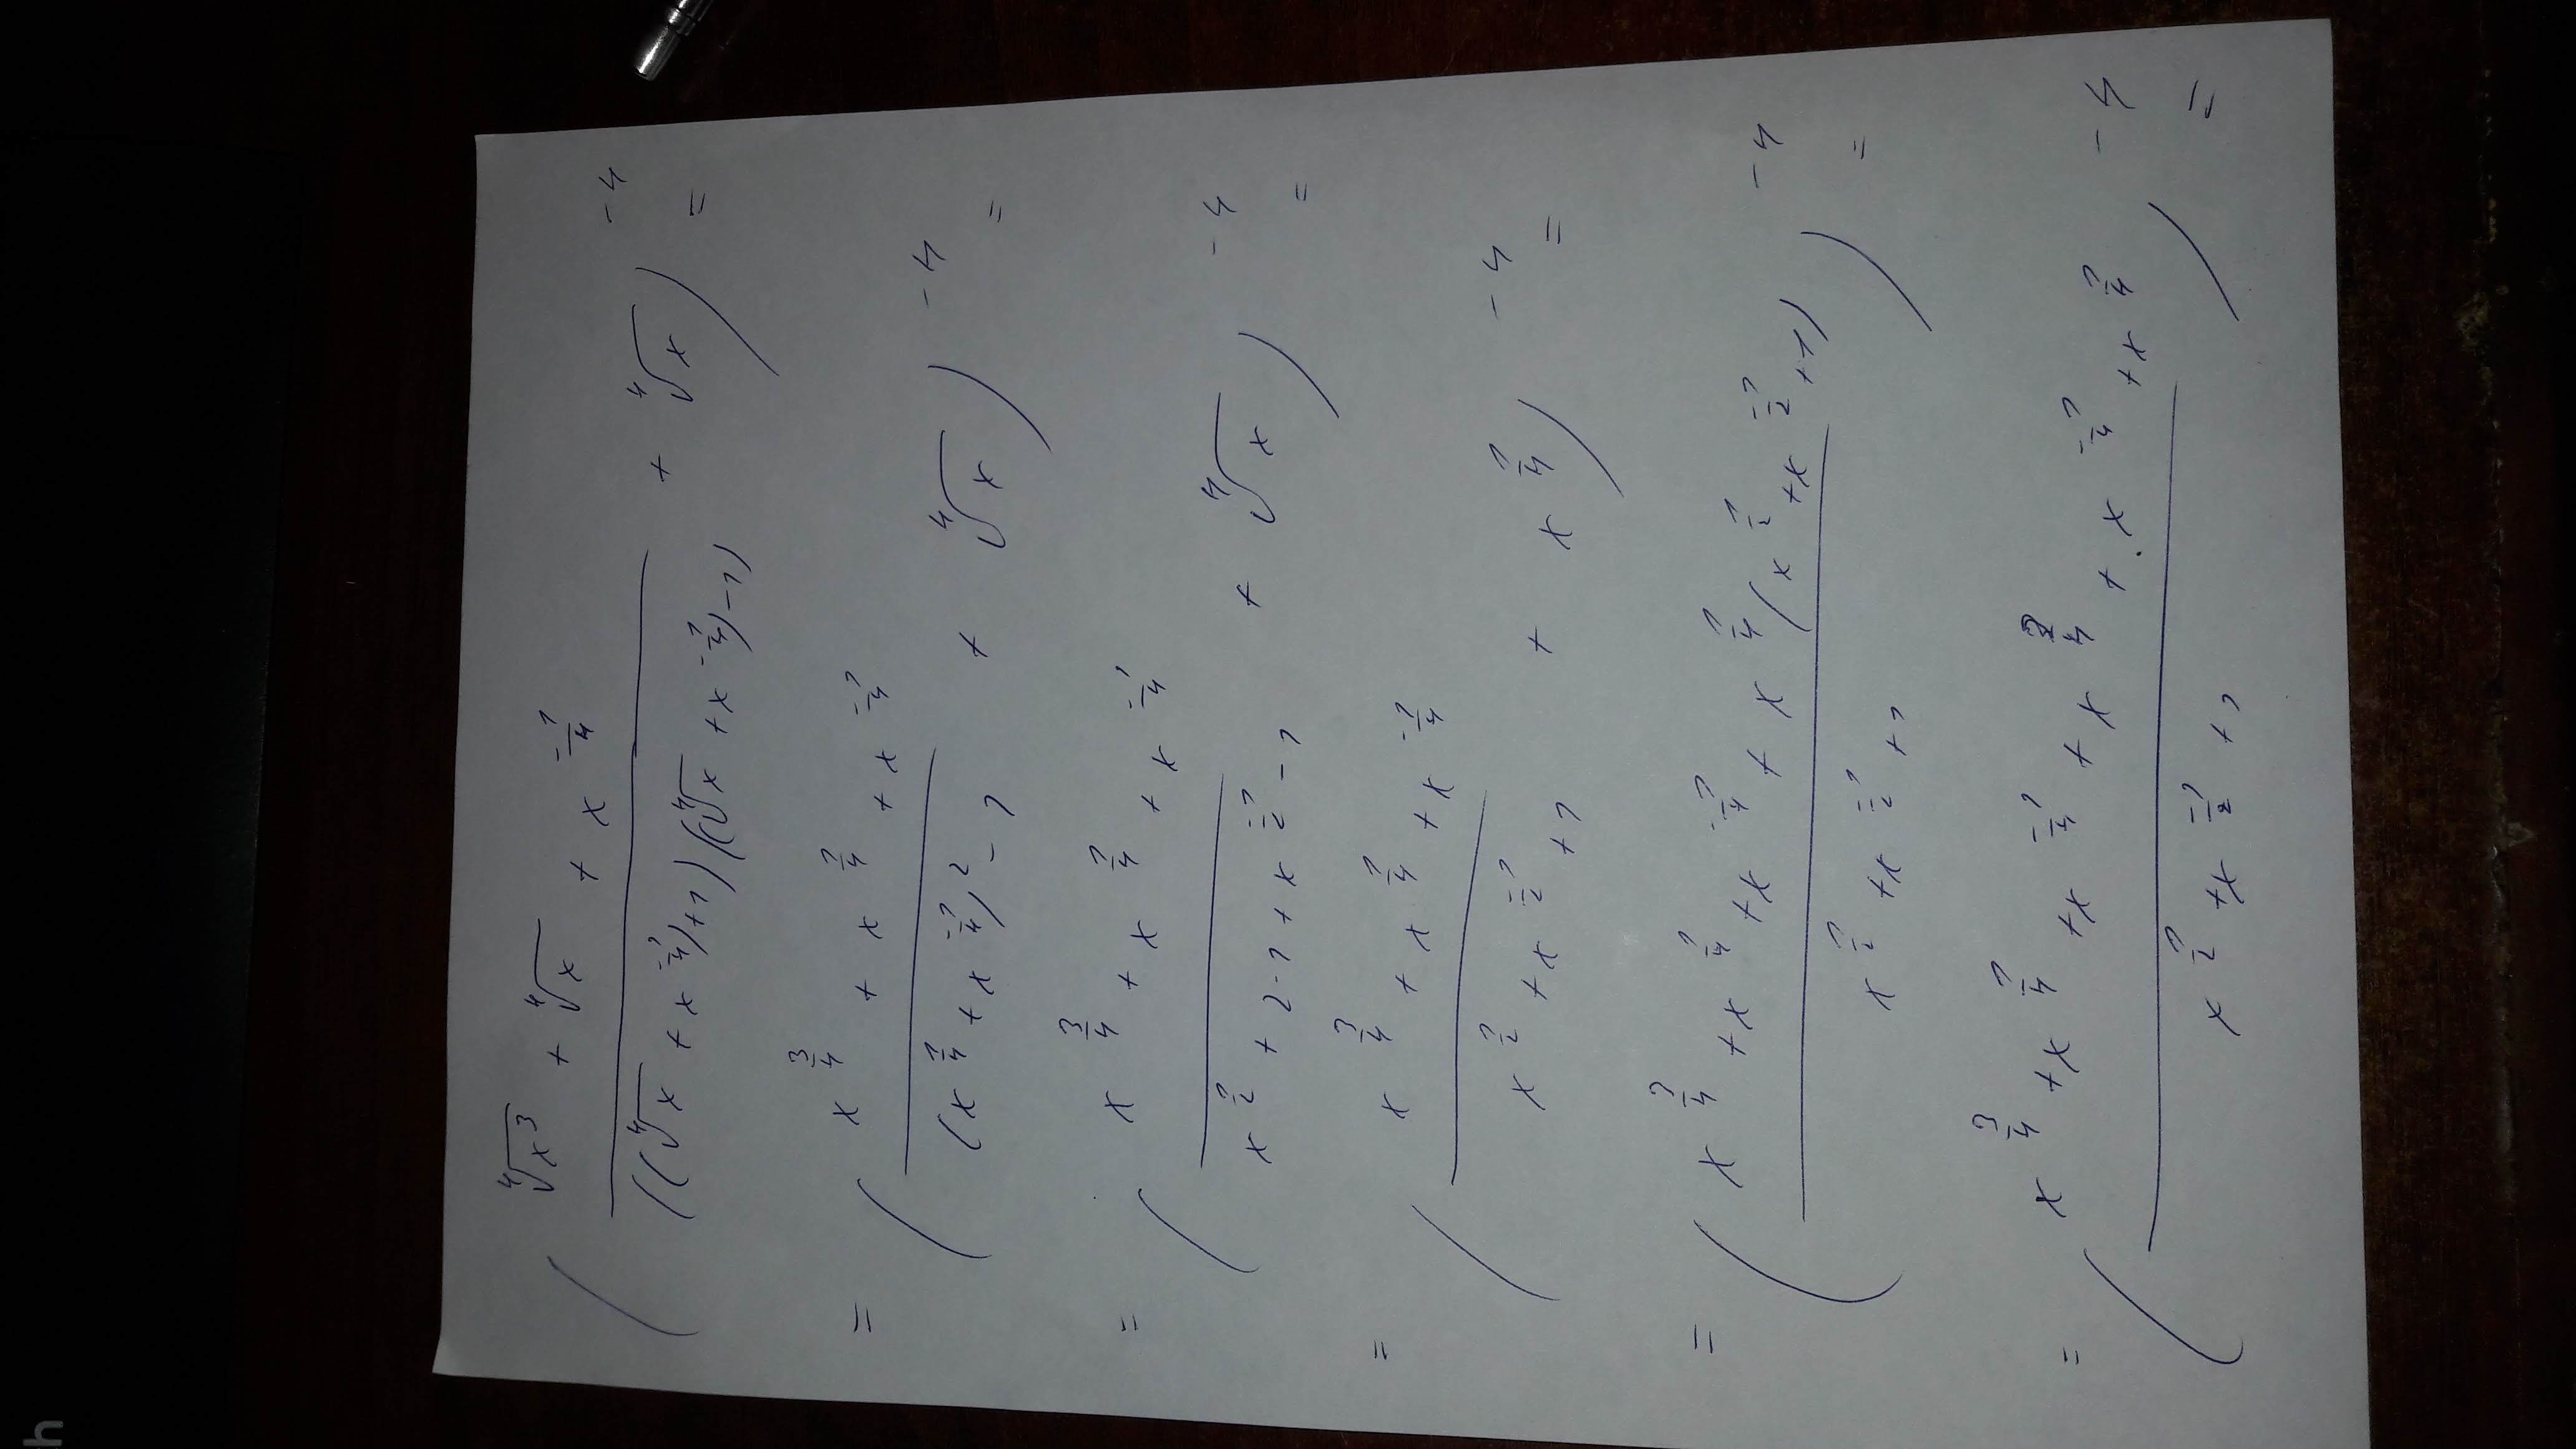 ( (⁴√x³ + ⁴√x + x^(-1/4)) / (((⁴√x + x^(-1/4))+1)((⁴√x + x^(-1/4))-1)) + ⁴√x )^(-4) =
= ( (x^(3/4) + x^(1/4) + x^(-1/4)) / ((x^(1/4) + x^(-1/4))² - 1) + ⁴√x )^(-4) =
= ( (x^(3/4) + x^(1/4) + x^(-1/4)) / (x^(1/2) + 2 - 1 + x^(-1/2) - 1) + ⁴√x )^(-4) =
= ( (x^(3/4) + x^(1/4) + x^(-1/4)) / (x^(1/2) + x^(-1/2) + 1) + x^(1/4) )^(-4) =
= ( (x^(3/4) + x^(1/4) + x^(-1/4) + x^(1/4)(x^(1/2) + x^(-1/2) + 1)) / (x^(1/2) + x^(-1/2) + 1) )^(-4) =
= ( (x^(3/4) + x^(1/4) + x^(-1/4) + x^(3/4) + x^(-1/4) + x^(1/4)) / (x^(1/2) + x^(-1/2) + 1) )^(-4) =
h